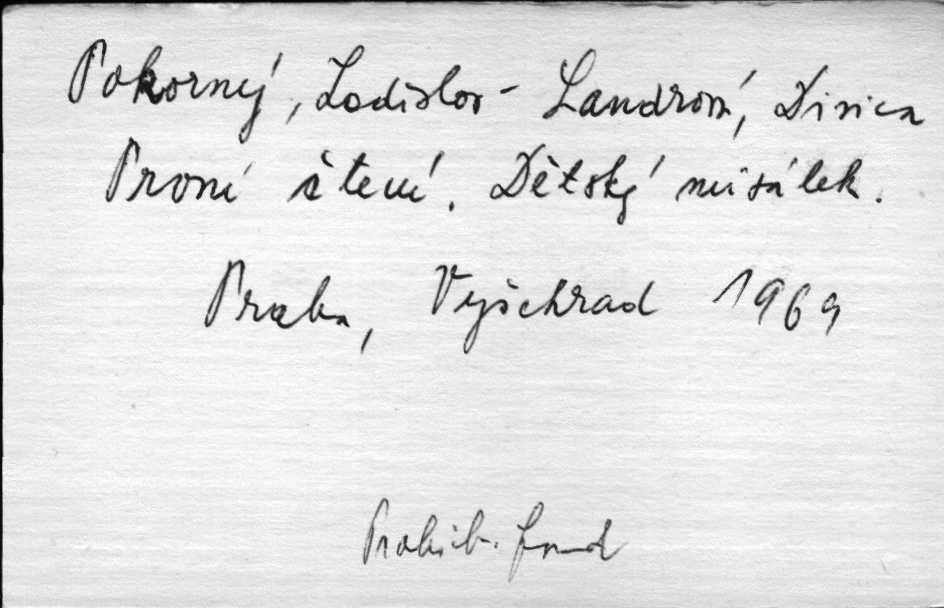 Pokorný, Ladislav - Landrová, Divica
První čtení. Dětský misálek.
Praha, Vyšehrad 1969
Prohib. fond